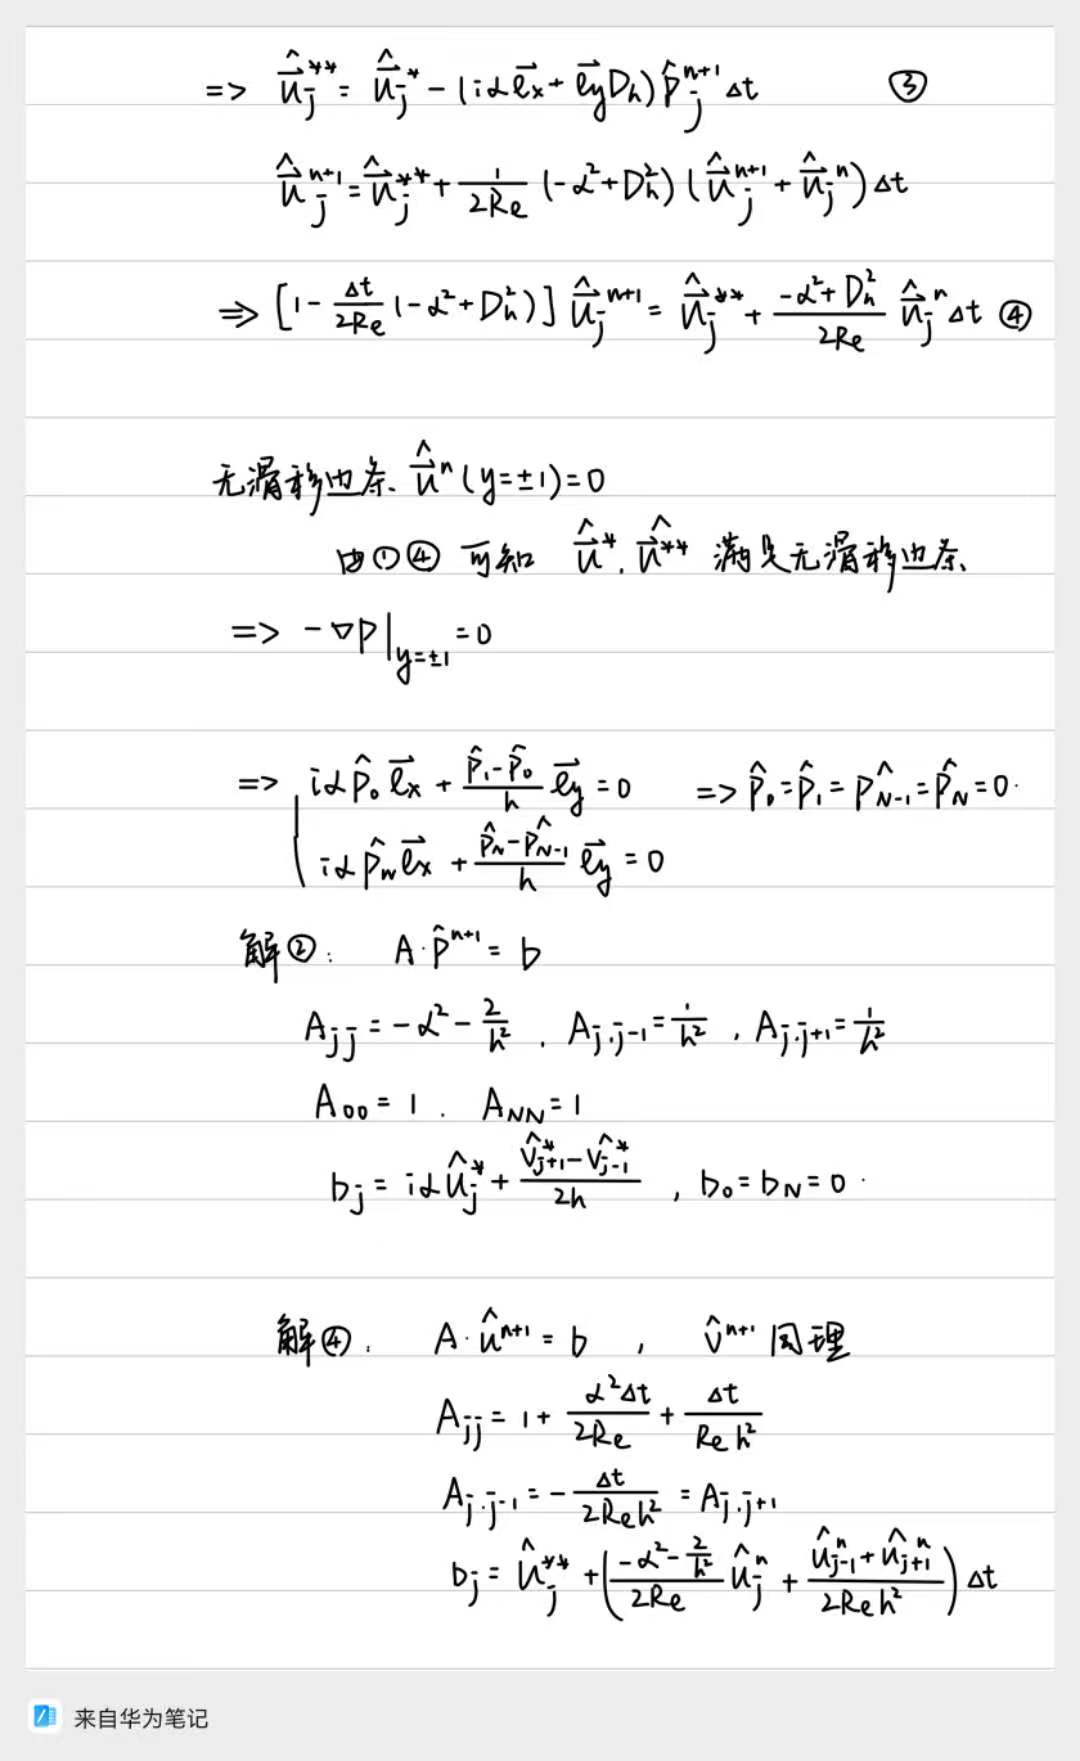 => \hat{\vec{u}}_j^{**} = \hat{\vec{u}}_j^{*} - (iα\vec{e}_x + \vec{e}_y D_h) \hat{p}_j^{n+1} Δt ③
\hat{\vec{u}}_j^{n+1} = \hat{\vec{u}}_j^{**} + \frac{1}{2Re} (-α^2 + D_h^2) (\hat{\vec{u}}_j^{n+1} + \hat{\vec{u}}_j^{n}) Δt
=> [1 - \frac{Δt}{2Re} (-α^2 + D_h^2)] \hat{\vec{u}}_j^{n+1} = \hat{\vec{u}}_j^{**} + \frac{-α^2 + D_h^2}{2Re} \hat{\vec{u}}_j^{n} Δt ④
无滑移边条. \hat{\vec{u}}^n (y=±1)=0
由①④ 可知 \hat{\vec{u}}^*. \hat{\vec{u}}^{**} 满足无滑移边条.
=> -∇p|_{y=±1} = 0
=> iα\hat{p}_0 \vec{e}_x + \frac{\hat{p}_1 - \hat{p}_0}{h} \vec{e}_y = 0 => \hat{p}_0 = \hat{p}_1 = \hat{p}_{N-1} = \hat{p}_N = 0.
iα\hat{p}_N \vec{e}_x + \frac{\hat{p}_N - \hat{p}_{N-1}}{h} \vec{e}_y = 0
解②: A·\hat{p}^{n+1} = b
A_{jj} = -α^2 - \frac{2}{h^2}, A_{j.j-1} = \frac{1}{h^2}, A_{j.j+1} = \frac{1}{h^2}
A_{00} = 1. A_{NN} = 1
b_j = iα\hat{u}_j^* + \frac{\hat{v}_{j+1}^* - \hat{v}_{j-1}^*}{2h}, b_0 = b_N = 0.
解④: A·\hat{u}^{n+1} = b, \hat{v}^{n+1} 同理
A_{jj} = 1 + \frac{α^2Δt}{2Re} + \frac{Δt}{Re h^2}
A_{j.j-1} = -\frac{Δt}{2Reh^2} = A_{j.j+1}
b_j = \hat{u}_j^{**} + (\frac{-α^2 - \frac{2}{h^2}}{2Re} \hat{u}_j^n + \frac{\hat{u}_{j-1}^n + \hat{u}_{j+1}^n}{2Reh^2}) Δt
来自华为笔记